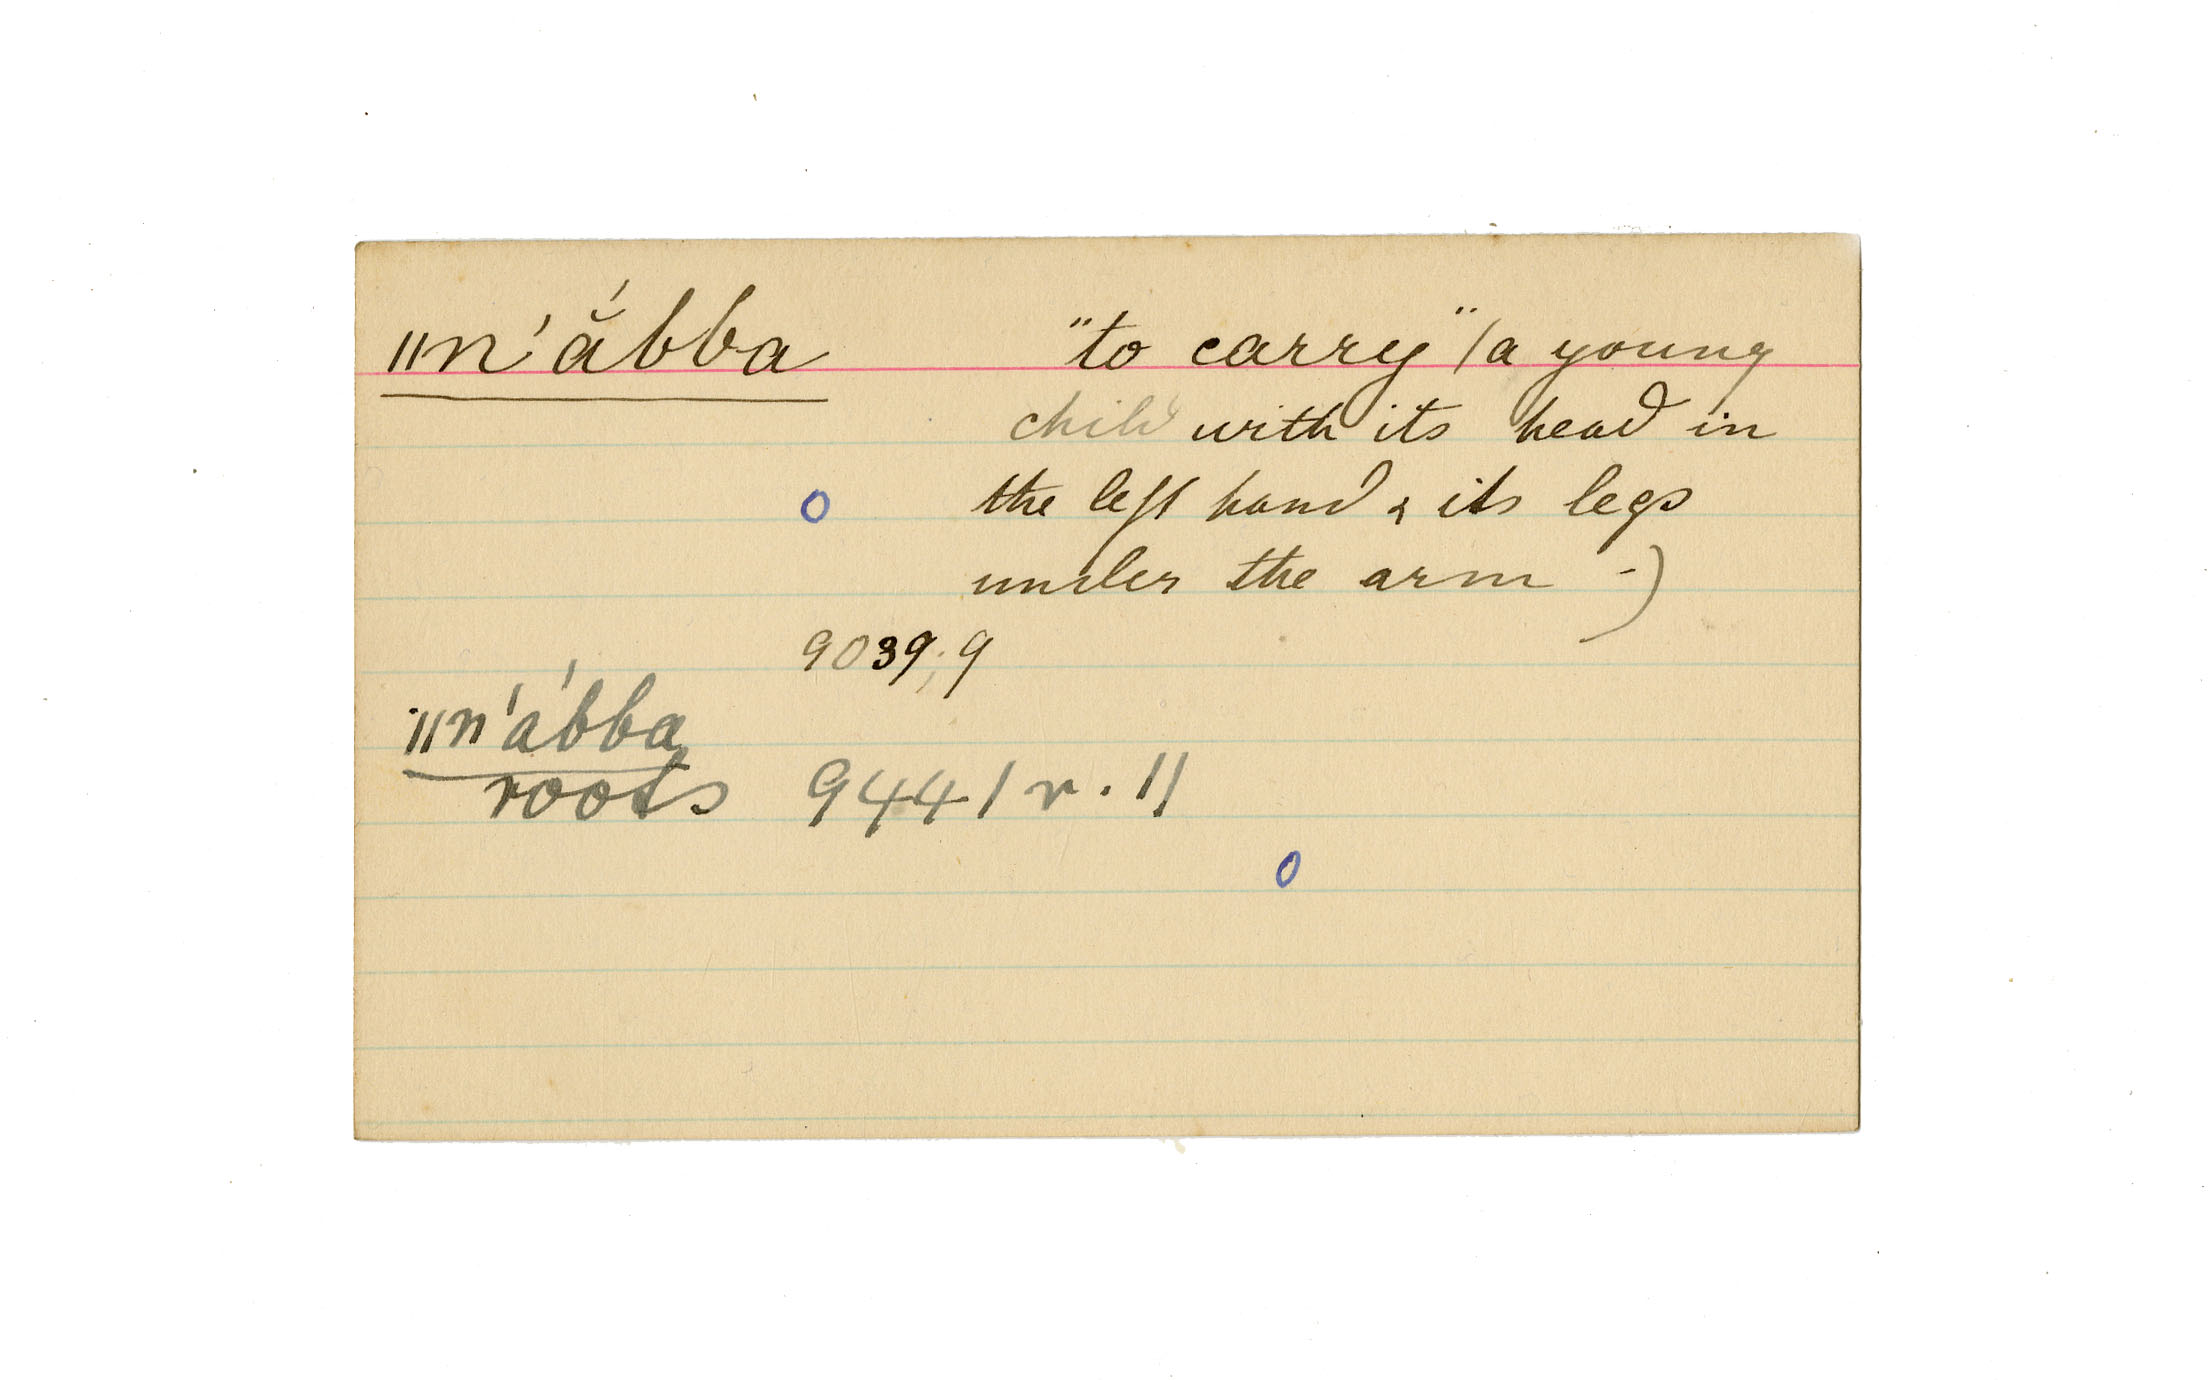 ǁn'ắbba "to carry" (a young
child with its head in
the left hand & its legs
under the arm -)
9039,9
ǁn'ábba
roots 9441 r. 11